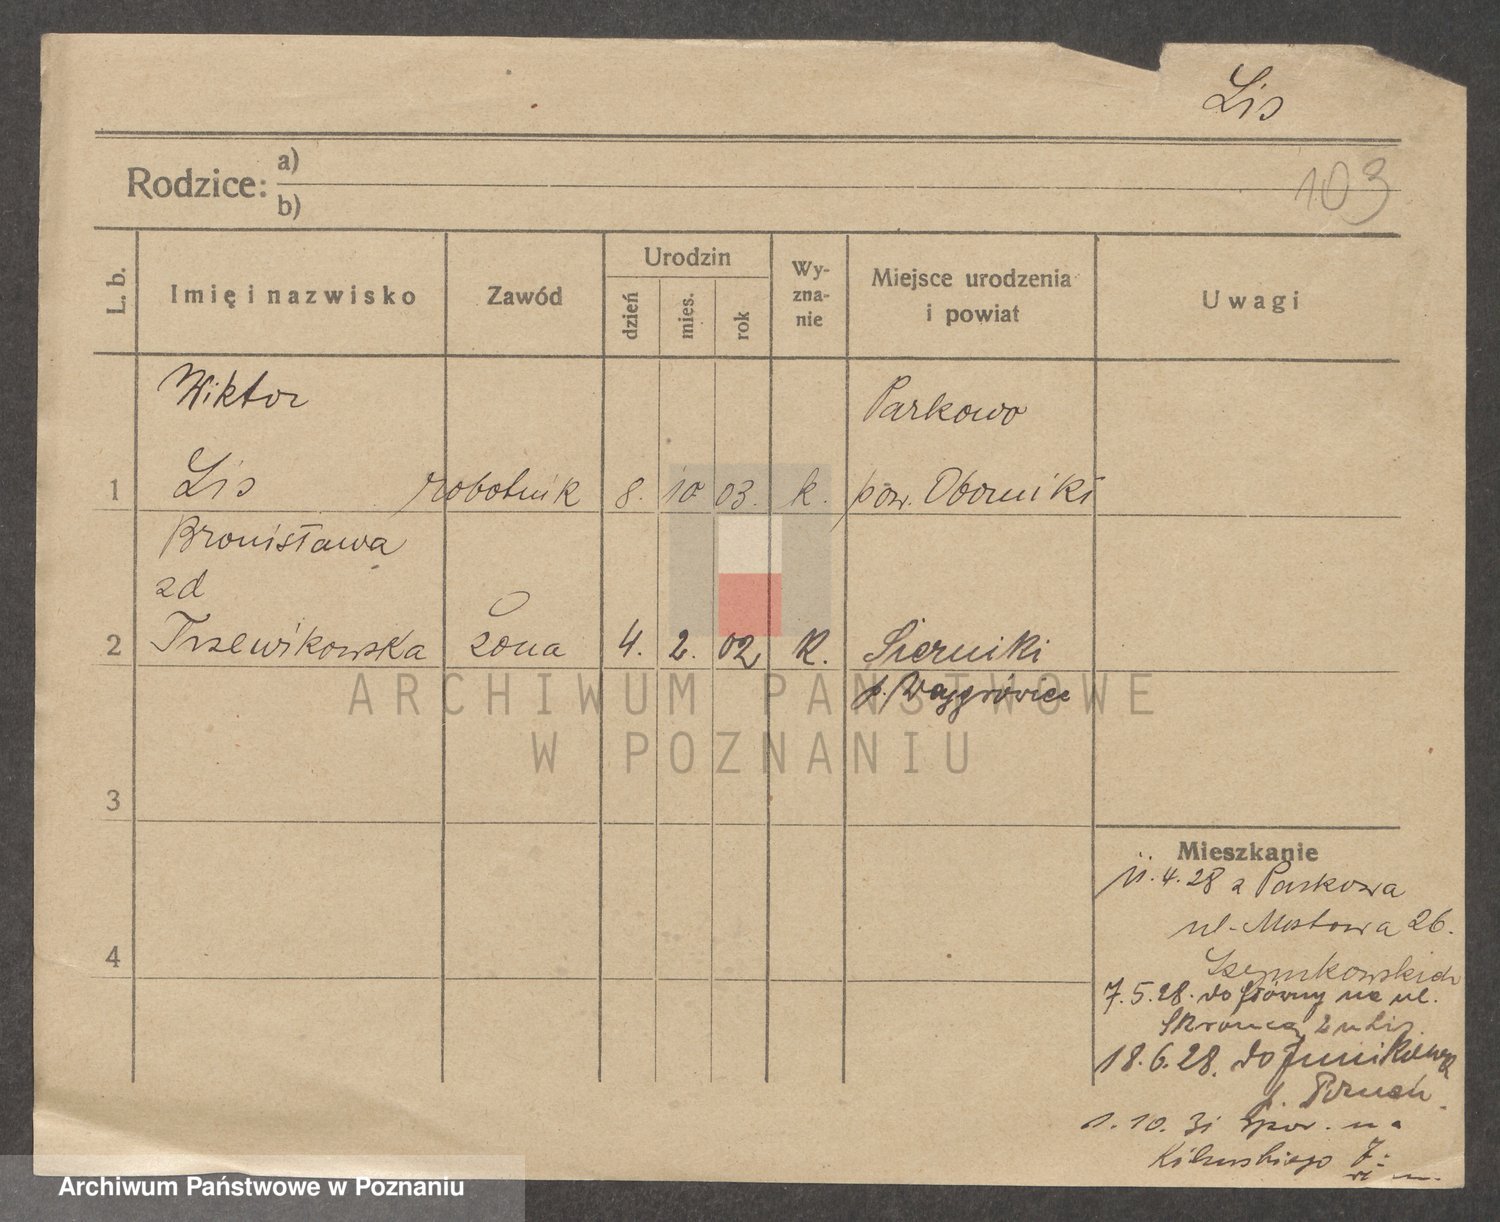 Lis
103
Rodzice:
a)
b)
L. b.
Imię i nazwisko
Zawód
Urodzin
dzień
mies.
rok
Wy-
zna-
nie
Miejsce urodzenia
i powiat
Uwagi
Wiktor
Parkowo
1 Lis robotnik 8. 10 03. k. pow. Oborniki
Bronisława
zd
2 Trzewikowska żona 4. 2. 02 k. Sierniki
p. Wągrówiec
3
4
Mieszkanie
11.4.28 z Parkowa
ul. Mostowa 26.
7.5.28. do na ul.
18.6.28. do Junikowa
p. Poznań.
1.10.31 na
ARCHIWUM PAŃSTWOWE
W POZNANIU
Archiwum Państwowe w Poznaniu